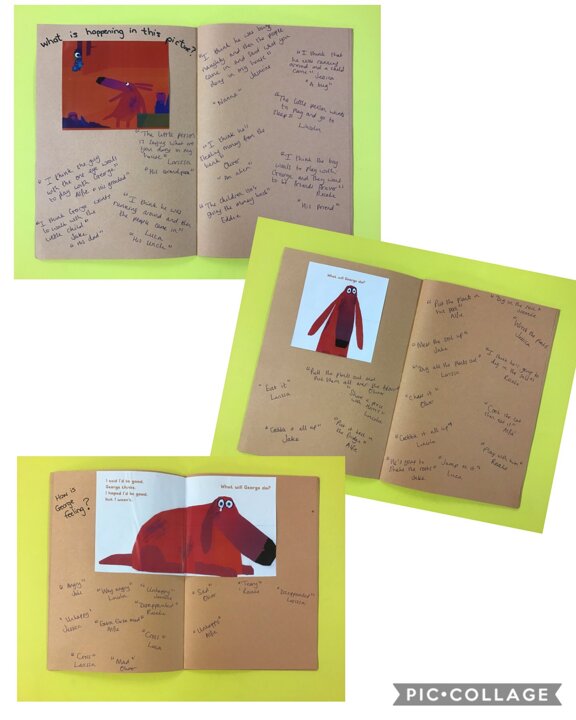 what is happening in this picture?
"The little person
is saying what are
you doing in my
house"
Larissa
"His grandpa"
"I think the guy
with the one eye wants
to play with George"
Alfie "His grandad"
"I think George wants
to walk with the
little child"
Jake
"His dad"
"I think he was
running around and then
the people came in"
Luca
"His Uncle"
"I think he was being
naughty and then the people
came in and said what you
doing in my house"
Jasmine
"Nanna"
"I think he's
stealing money from the
bank"
Oliver
"An alien"
"The children isn't
giving the money back"
Eddie
"I think that
he was running
around and a child
came" Jessica
"A bug"
"The little person wants
to play and go to
sleep"
Lincoln
"I think the boy
wants to play with
George and they want
to be friends forever"
Rosie
"His friend"
What will George do?
"Pull the plants out and
put them all over the floor"
Oliver
"Eat it"
Larissa
with
Lincoln
"Gobble it all up"
Jake
Alfie
"Put the plants in
the pot"
Alfie
"Dig in the soil"
Jasmine
Jessica
"Mess the soil up"
Jake
"Dig all the plants out"
Larissa
"I think he's going to
dig in the
Rosie
"Chase it"
Oliver
Alfie
"Gobble it all up"
Lincoln
"Play with him"
Rosie
"He's going to
shake the roots"
Jake
"Jump to it"
Luca
How is
George
feeling?
I said I'd be good,
George thinks.
I hoped I'd be good,
but I wasn't...
What will George do?
"Angry"
Jake
"Very angry"
Lincoln
"Unhappy"
"Disappointed"
Rosie
"Unhappy"
Jessica
"Extra extra mad"
Alfie
"Cross"
Luca
"Cross"
Larissa
"Mad"
Oliver
"Sad"
Oliver
"Teary"
Rosie
"Disappointed"
Larissa
"Unhappy"
Alfie
PIC•COLLAGE